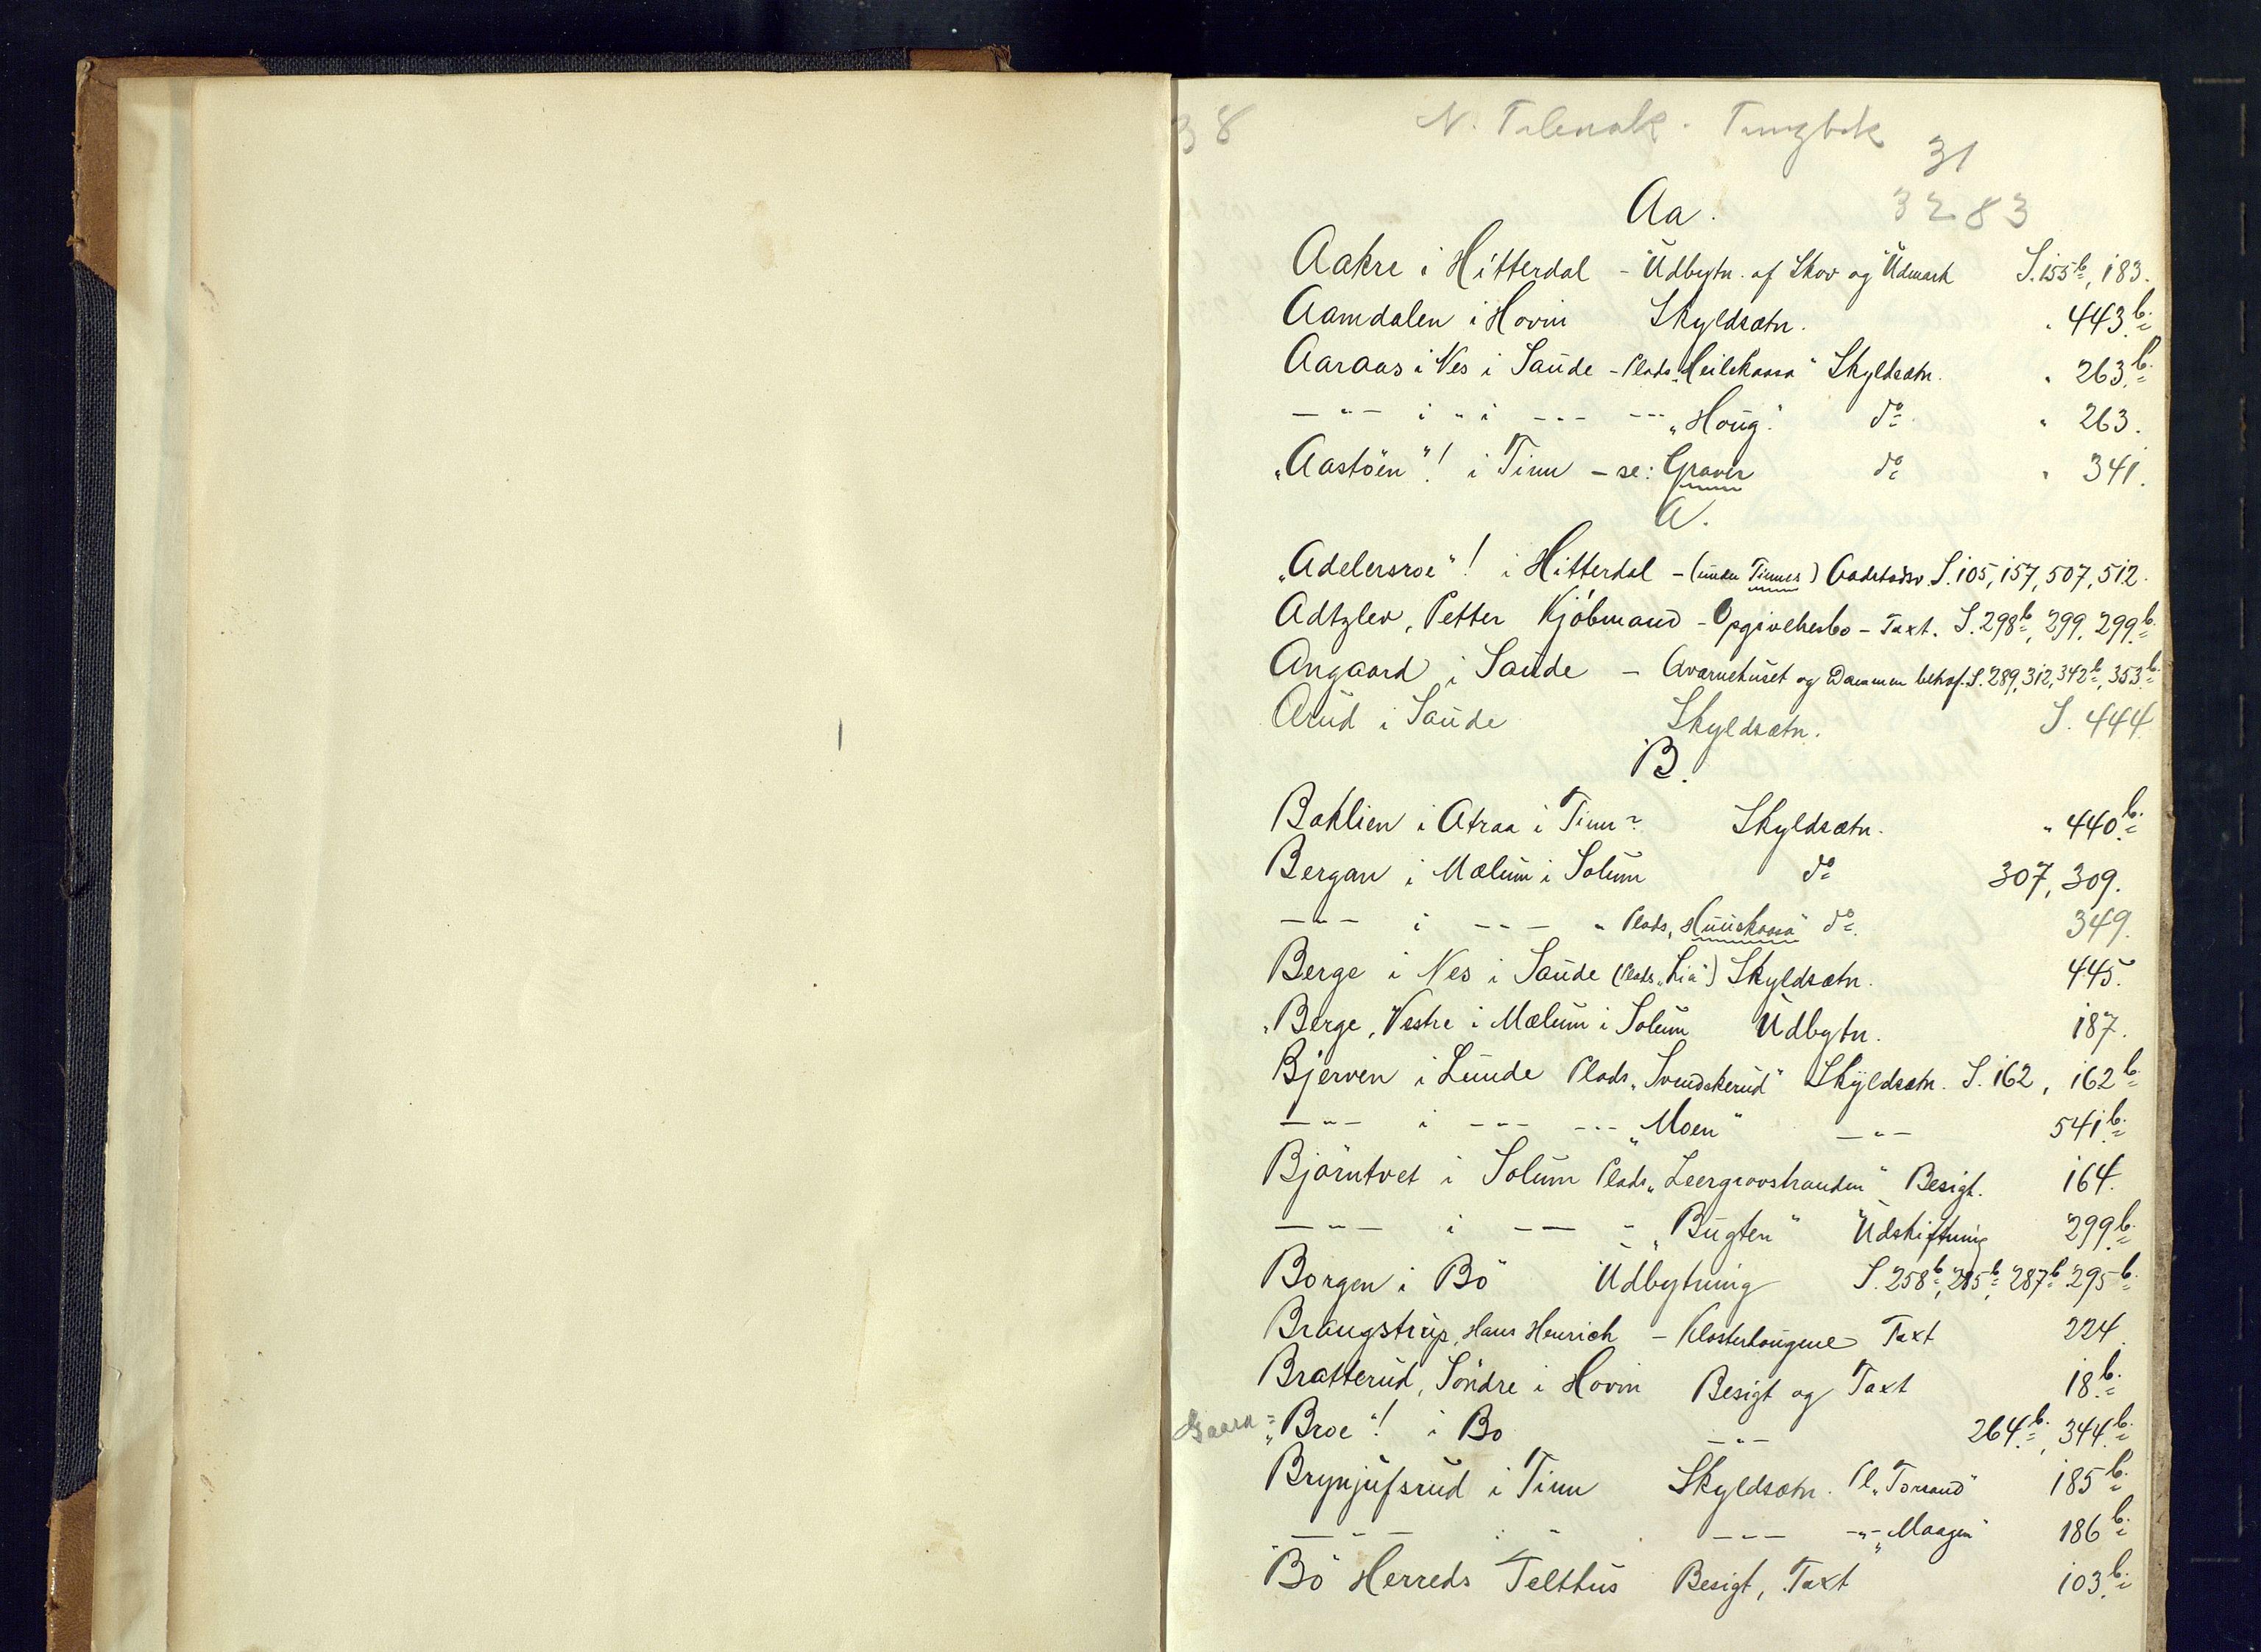 38
N. Telemark. Tingbok
31
Aa.
3283
Aakre i Hitterdal - Udbytn. af Skov og Udmark S. 155b, 183.
Aamdalen i Hovin Skyldsætn. " 443b.
Aaraas i Nes i Saude - Plads „Heilekaasa" Skyldsætn. " 263b.
— " — i " i --- --- „Houg." do " 263.
„Aastöen"! i Tinn - se: Graver do " 341.
A.
„Adelersroe"! i Hitterdal - (under Tinnes) Aadstedsv. S. 105, 157, 507, 512.
Adtzlev, Petter Kjöbmand - Opgivelsesbo - Taxt. S. 298b, 299, 299b.
Angaard i Saude - Qværnehuset og Dammen S. 289, 312, 342b, 353b.
Arud i Saude Skyldsætn. S. 444.
B.
Baklien i Atraa i Tinn? Skyldsætn. " 440b.
Bergan i Mælum i Solum do 307, 309.
— " — i — " — " Plads „Huuskaasa" do 349.
Berge i Nes i Saude (Plads „Lia") Skyldsætn. 445.
„Berge, Vestre i Mælum i Solum Udbytn. 187.
Bjerven i Lunde Plads „Svendskerud" Skyldsætn. S. 162, 162b
— " — i --- --- „Moen" — " — 541b.
Björntvet i Solum Plads „Leergrovstranden" Besigt. 164.
— " — i — — " „Bugten" Udskiftning 299b.
Borgen i Bö Udbytning S. 258b, 285b, 287b 295b.
Braugstrup, Hans Henrich - Klosterhougene Taxt 224.
Bratterud, Söndre i Hovin Besigt og Taxt 18b.
Gaard = „Broe"! i Bo — " — 264b., 344b.
Brynjufsrud i Tinn Skyldsætn. Pl. „Torsand" 185b.
— " — : " --- - " - „Maagen" 186b.
Bö Herreds Telthus Besigt, Taxt 103b.